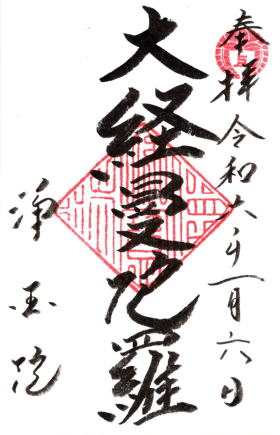 奉拝 令和六年一月六日
大経曼陀羅
浄国院